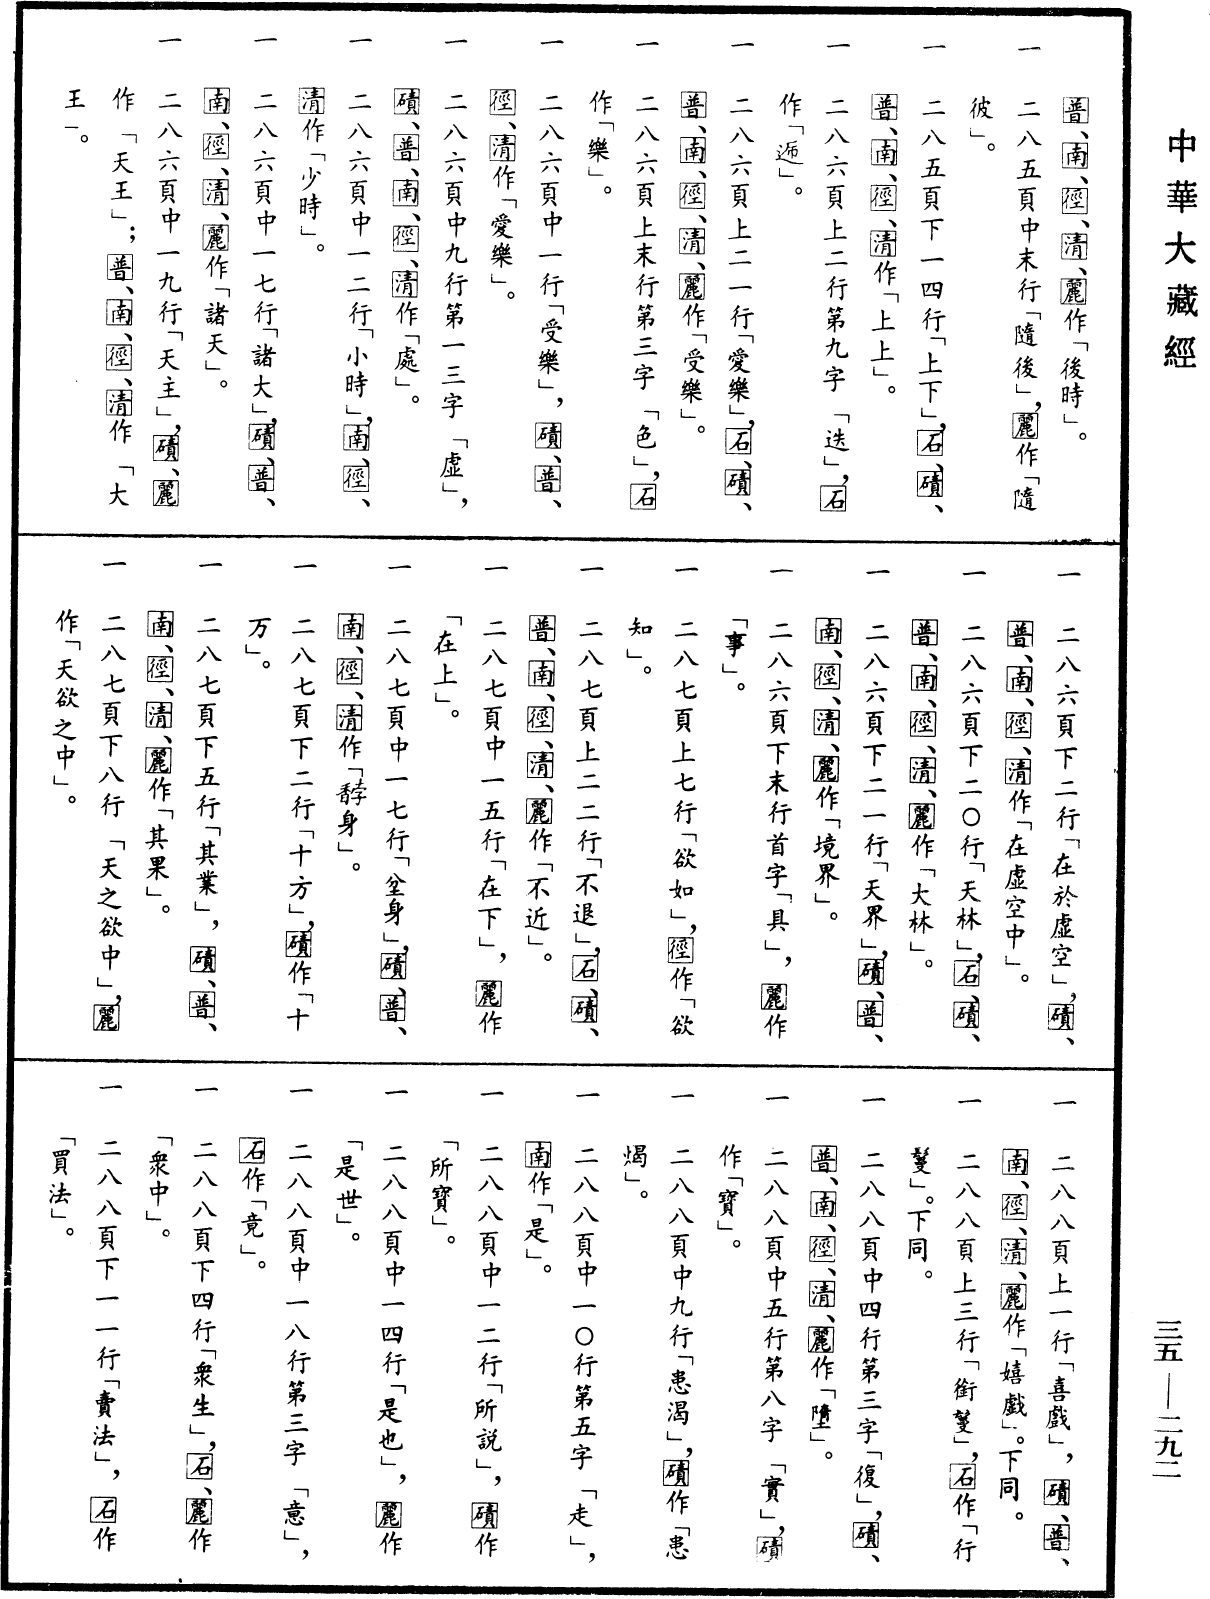 中華大藏經
三五—二九二
普、南、徑、清、麗作「後時」。
一　二八五頁中末行「隨後」，麗作「隨
彼」。
一　二八五頁下一四行「上下」，石、磧、
普、南、徑、清作「上上」。
一　二八六頁上二行第九字「迭」，石
作「遞」。
一　二八六頁上二一行「愛樂」，石、磧、
普、南、徑、清、麗作「受樂」。
一　二八六頁上末行第三字「色」，石
作「樂」。
一　二八六頁中一行「受樂」，磧、普、
徑、清作「愛樂」。
一　二八六頁中九行第一三字「虛」，
磧、普、南、徑、清作「處」。
一　二八六頁中一二行「小時」，南、徑、
清作「少時」。
一　二八六頁中一七行「諸大」，磧、普、
南、徑、清、麗作「諸天」。
一　二八六頁中一九行「天主」，磧、麗
作「天王」；普、南、徑、清作「大
王」。
一　二八六頁下二行「在於虛空」，磧、
普、南、徑、清作「在虛空中」。
一　二八六頁下二〇行「天林」，石、磧、
普、南、徑、清、麗作「大林」。
一　二八六頁下二一行「天界」，磧、普、
南、徑、清、麗作「境界」。
一　二八六頁下末行首字「具」，麗作
「事」。
一　二八七頁上七行「欲如」，徑作「欲
知」。
一　二八七頁上二二行「不退」，石、磧、
普、南、徑、清、麗作「不近」。
一　二八七頁中一五行「在下」，麗作
「在上」。
一　二八七頁中一七行「坌身」，磧、普、
南、徑、清作「馞身」。
一　二八七頁下二行「十方」，磧作「十
万」。
一　二八七頁下五行「其業」，磧、普、
南、徑、清、麗作「其果」。
一　二八七頁下八行「天之欲中」，麗
作「天欲之中」。
一　二八八頁上一行「喜戲」，磧、普、
南、徑、清、麗作「嬉戲」。下同。
一　二八八頁上三行「銜鬘」，石作「行
鬘」。下同。
一　二八八頁中四行第三字「復」，磧、
普、南、徑、清、麗作「墮」。
一　二八八頁中五行第八字「實」，磧
作「寶」。
一　二八八頁中九行「患渴」，磧作「患
煬」。
一　二八八頁中一〇行第五字「走」，
南作「是」。
一　二八八頁中一二行「所説」，磧作
「所寶」。
一　二八八頁中一四行「是也」，麗作
「是世」。
一　二八八頁中一八行第三字「意」，
石作「竟」。
一　二八八頁下四行「衆生」，石、麗作
「衆中」。
一　二八八頁下一一行「賣法」，石作
「買法」。